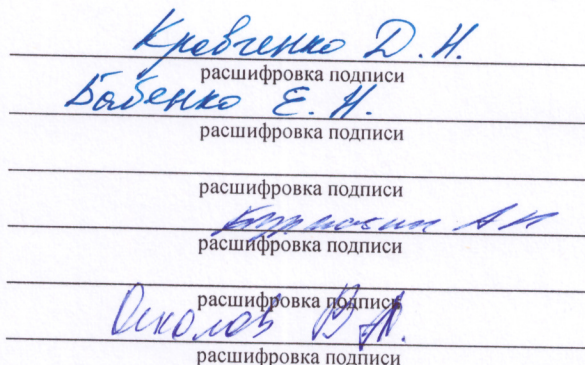 Кравченко Д. Н.
расшифровка подписи
Бабенко Е. Н.
расшифровка подписи
расшифровка подписи
А Н
расшифровка подписи
расшифровка подписи
Осколов В
расшифровка подписи